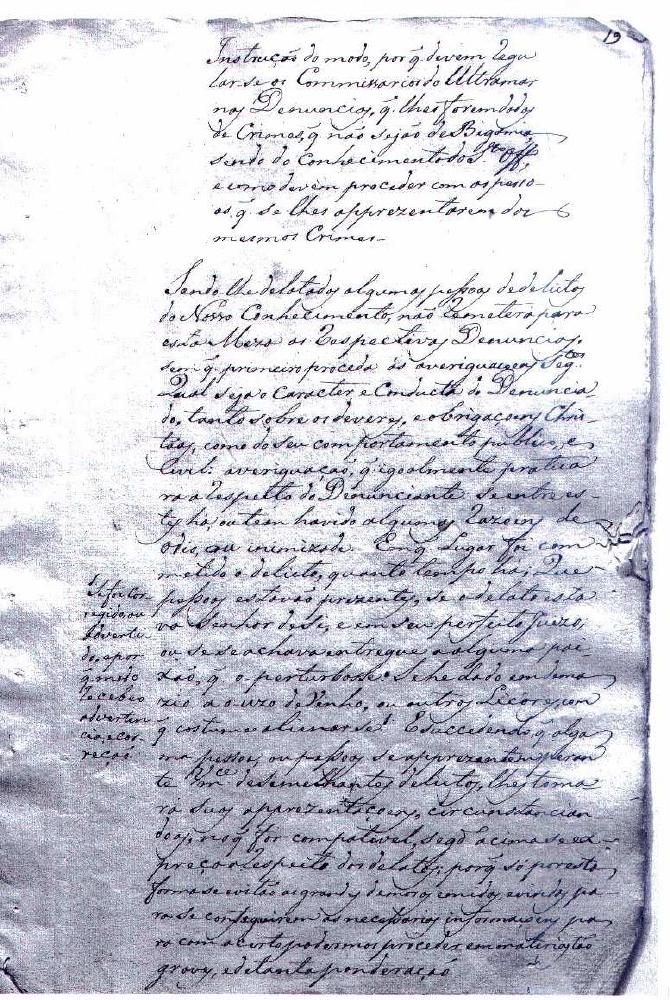 19
Instrução do modo, por q̃ devem regu
lar-se os Commissarios do Ultramar
nas Denuncias, q̃ lhes forem dadas
de Crimes, q̃ não sejão de Bigamia,
sendo do Conhecimento do S.to Off.o
e como devem proceder com as pesso-
as, q̃ se lhes apprezentarem dos
mesmos Crimes.
Sendo lhe delatadas algumas pessoas de delictos
do Nosso Conhecimento, não remeterá para
esta Meza as respectivas Denuncias,
sem q̃ primeiro proceda ás averiguaçoens seg.tes
Qual seja o Caracter, e Conducta do Denuncia
do, tanto sobre os deveres, e obrigaçoens Chris-
tãas, como do seu comportamento publico, e
Civil: averiguação, q̃ igoalmente pratica
rá a respeito do Denunciante. Se entre es-
tes há, ou tem havido algumas razoens de
odio, ou inimizade. Em q̃ Lugar foi com
metido o delicto, quanto tempo há; Que
pessoas estavão prezentes, se o delato esta
va Senhor de Si, e em seu perfeito Juizo,
ou se se achava entregue a alguma pai-
xão, q̃ o perturbasse: Se he dado em dema
zia a o uzo de Vinho, ou outros Licores, com
q̃ costume alienar-se. E succedendo, q̃ algu
ma pessoa, ou pessoas se apprezentem peran
te Vm.ce de semelhantes delictos, lhes toma
rá suas apprezentaçoens, circunstancian
do as, no q̃ for compativel, seg.do acima se ex-
preça a respeito dos delatos; porq̃ só por esta
forma se evitão as grandes demoras em idas e vindas pa-
ra se conseguirem as necessarias informaçoens pa-
ra com acerto podermos proceder em materias tão
graves, e de tanta ponderação
Se foi cor
regido, ou
adverti
do, e por
q̃ modo
recebeo
adverten
cia, e cor-
reçaó